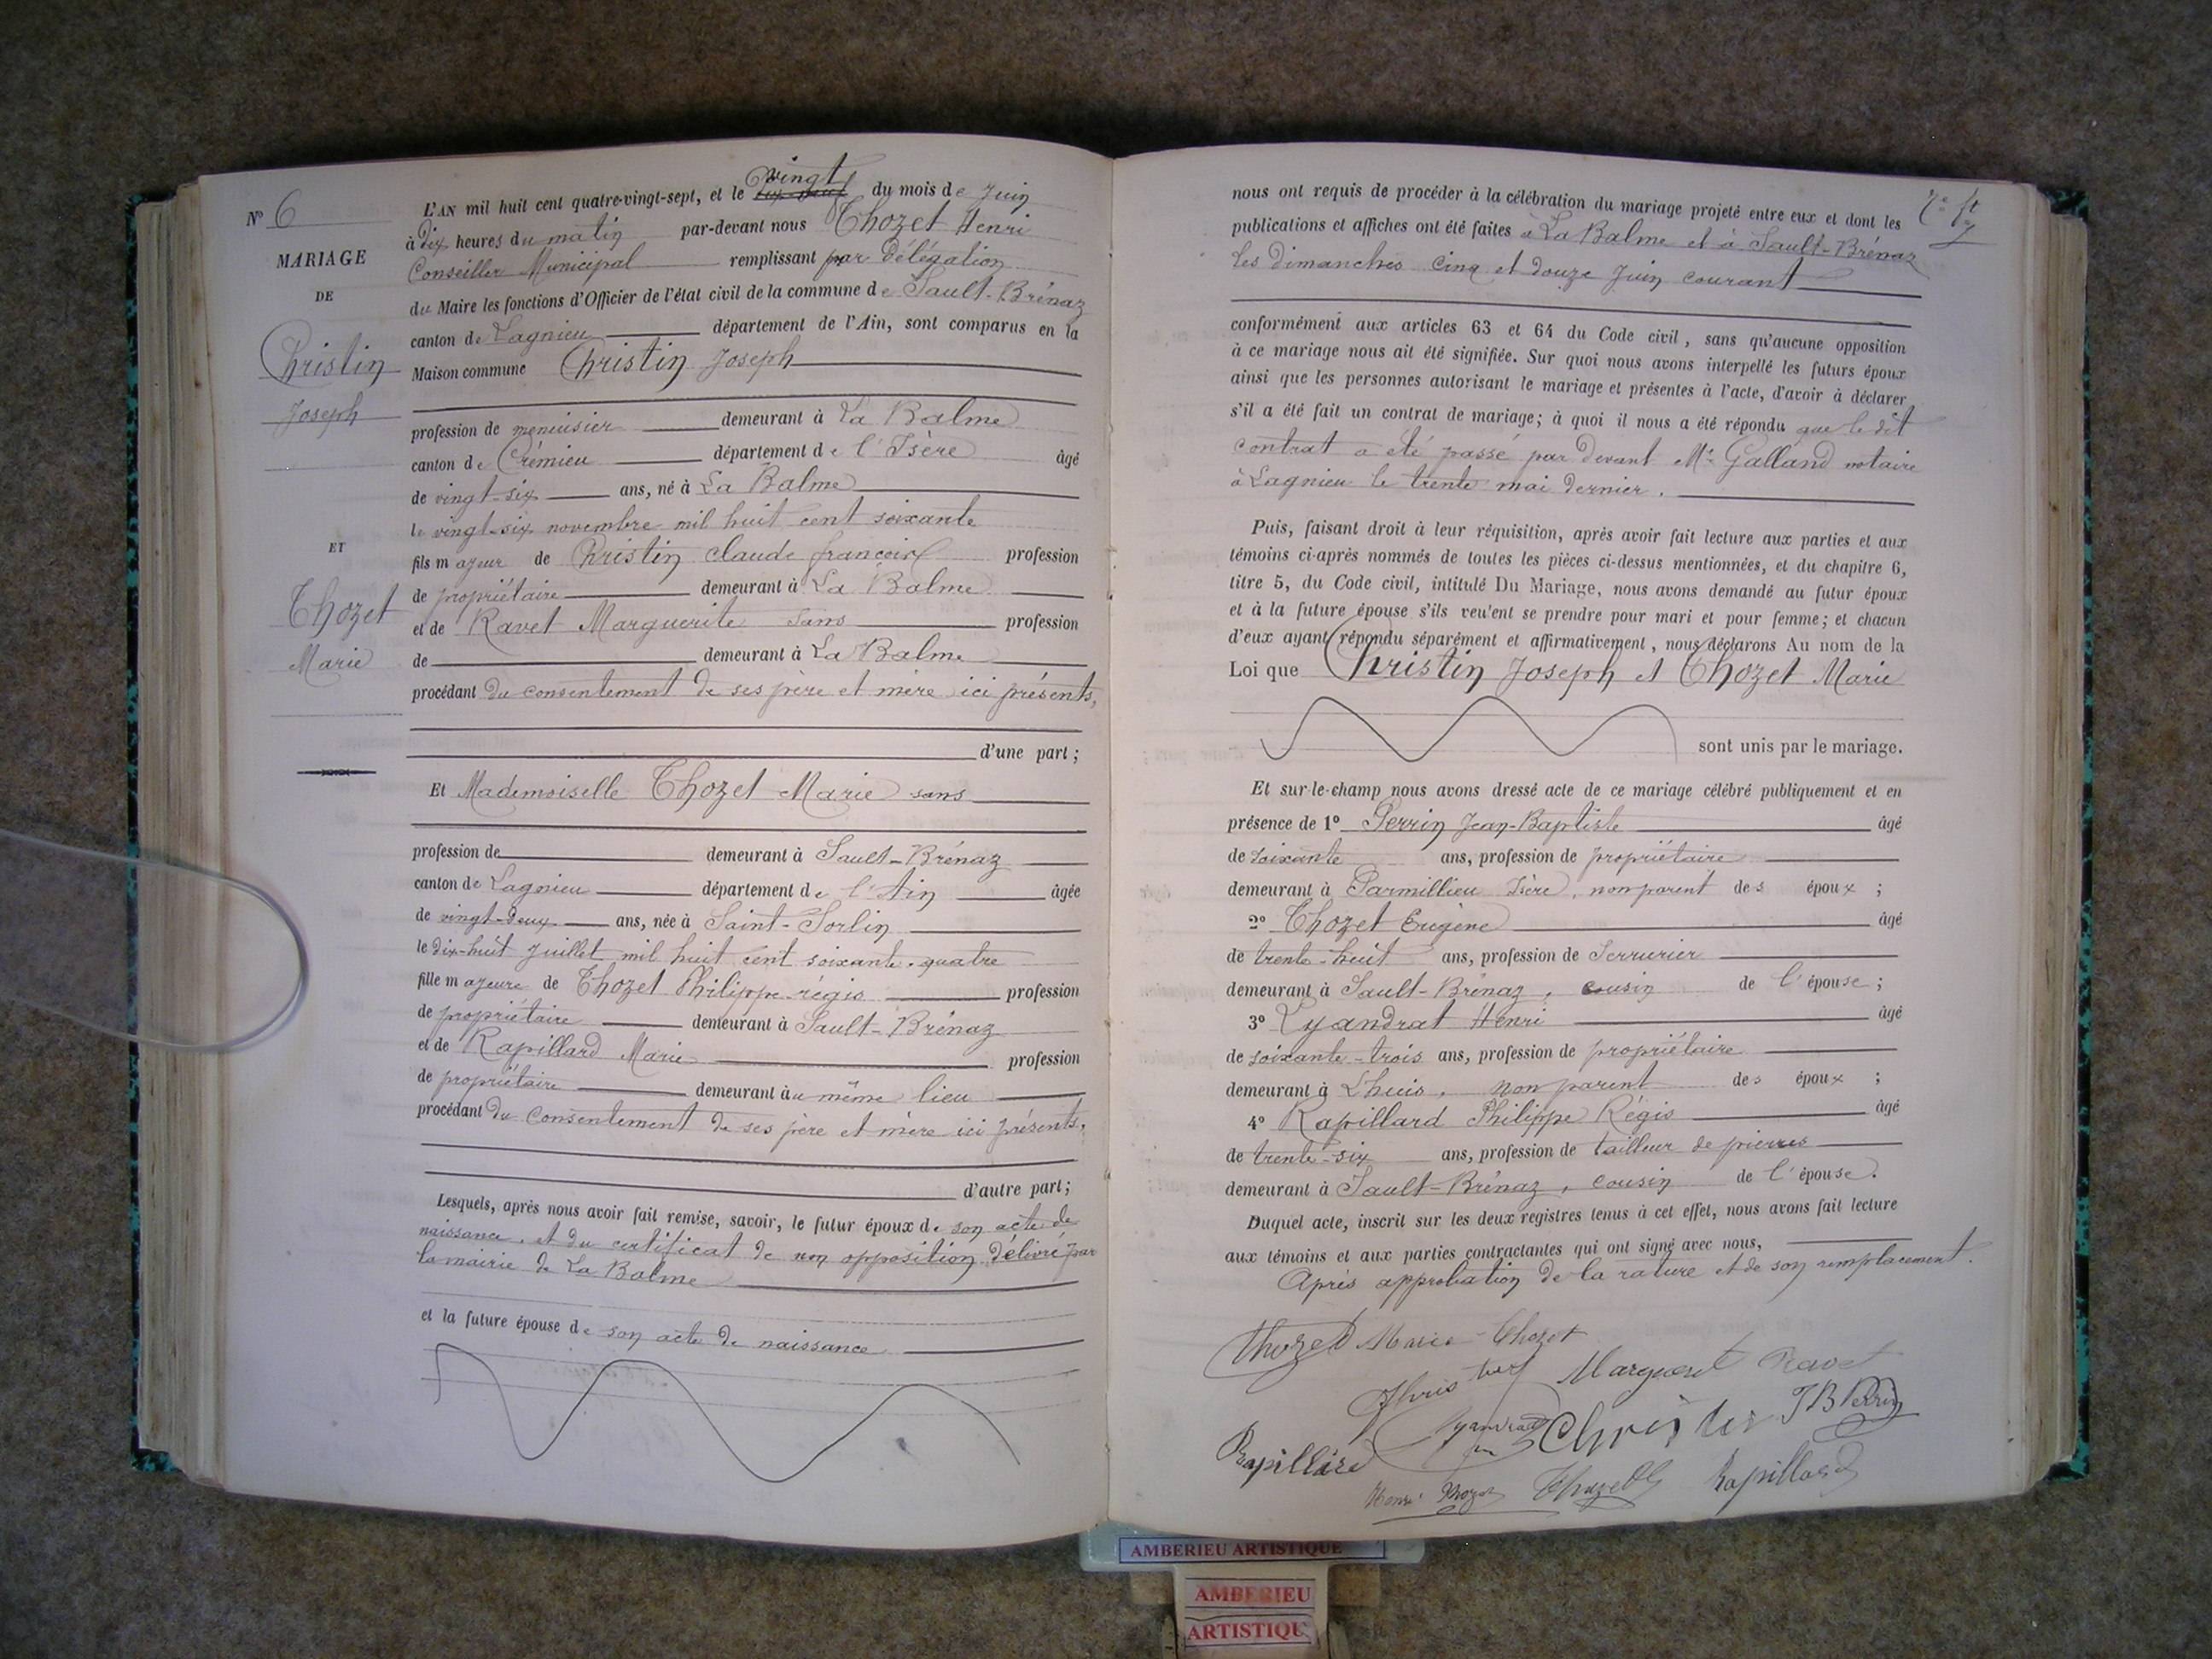 N° 6
MARIAGE
DE
Christin
Joseph
ET
Thozet
Marie
vingt
L'AN mil huit cent quatre-vingt-sept, et le dix-neuf du mois de Juin
à dix heures du matin par-devant nous Thozet Henri
Conseiller Municipal remplissant par délégation
du Maire les fonctions d'Officier de l'état civil de la commune de Sault-Brénaz
canton de Lagnieu département de l'Ain, sont comparus en la
Maison commune Christin Joseph
profession de menuisier demeurant à La Balme
canton de Crémieu département de l'Isère âgé
de vingt-six ans, né à La Balme
le vingt-six novembre mil huit cent soixante
fils majeur de Christin Claude françois profession
de propriétaire demeurant à La Balme
et de Ravet Marguerite sans profession
de demeurant à La Balme
procédant du consentement de ses père et mère ici présents,
d'une part ;
Et Mademoiselle Thozet Marie sans
profession de demeurant à Sault-Brénaz
canton de Lagnieu département de l'Ain âgée
de vingt-deux ans, née à Saint-Sorlin
le dix-huit Juillet mil huit cent soixante-quatre
fille majeure de Thozet Philippe-régis profession
de propriétaire demeurant à Sault-Brénaz
et de Rapillard Marie profession
de propriétaire demeurant au même lieu
procédant du consentement de ses père et mère ici présents.
d'autre part ;
Lesquels, après nous avoir fait remise, savoir, le futur époux de son acte de
naissance, et du certificat de non opposition délivré par
la mairie de La Balme
et la future épouse de son acte de naissance
nous ont requis de procéder à la célébration du mariage projeté entre eux et dont les
publications et affiches ont été faites à La Balme et à Sault-Brénaz
les dimanches cinq et douze Juin courant
conformément aux articles 63 et 64 du Code civil, sans qu'aucune opposition
à ce mariage nous ait été signifiée. Sur quoi nous avons interpellé les futurs époux
ainsi que les personnes autorisant le mariage et présentes à l'acte, d'avoir à déclarer
s'il a été fait un contrat de mariage ; à quoi il nous a été répondu que le dit
contrat a été passé par devant Me Galland notaire
à Lagnieu le trente mai dernier.
Puis, faisant droit à leur réquisition, après avoir fait lecture aux parties et aux
témoins ci-après nommés de toutes les pièces ci-dessus mentionnées, et du chapitre 6,
titre 5, du Code civil, intitulé Du Mariage, nous avons demandé au futur époux
et à la future épouse s'ils veu'ent se prendre pour mari et pour femme ; et chacun
d'eux ayant répondu séparément et affirmativement, nous déclarons Au nom de la
Loi que Christin Joseph et Thozet Marie
sont unis par le mariage.
Et sur-le-champ nous avons dressé acte de ce mariage célébré publiquement et en
présence de 1° Perrin Jean-Baptiste âgé
de soixante ans, profession de propriétaire
demeurant à Parmillieu Isère, non parent des époux ;
2° Thozet Eugène âgé
de trente-huit ans, profession de Serrurier
demeurant à Sault-Brénaz, cousin de l'épouse ;
3° Lyandrat Henri âgé
de soixante-trois ans, profession de propriétaire
demeurant à Lhuis, non parent des époux ;
4° Rapillard Philippe Régis âgé
de trente-six ans, profession de tailleur de pierres
demeurant à Sault-Brénaz, cousin de l'épouse.
Duquel acte, inscrit sur les deux registres tenus à cet effet, nous avons fait lecture
aux témoins et aux parties contractantes qui ont signé avec nous,
Après approbation de la rature et de son remplacement.
Thozet Marie Thozet
Marguerit Ravet
Lyandrat Christin J B Perrin
Rapillard
Henri Thozet Thozet Rapillard
AMBERIEU ARTISTIQUE
AMBERIEU
ARTISTIQU